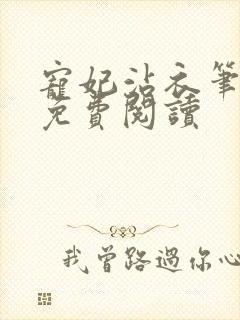 寵妃沾衣筆
免費閱讀
我曾路過你心